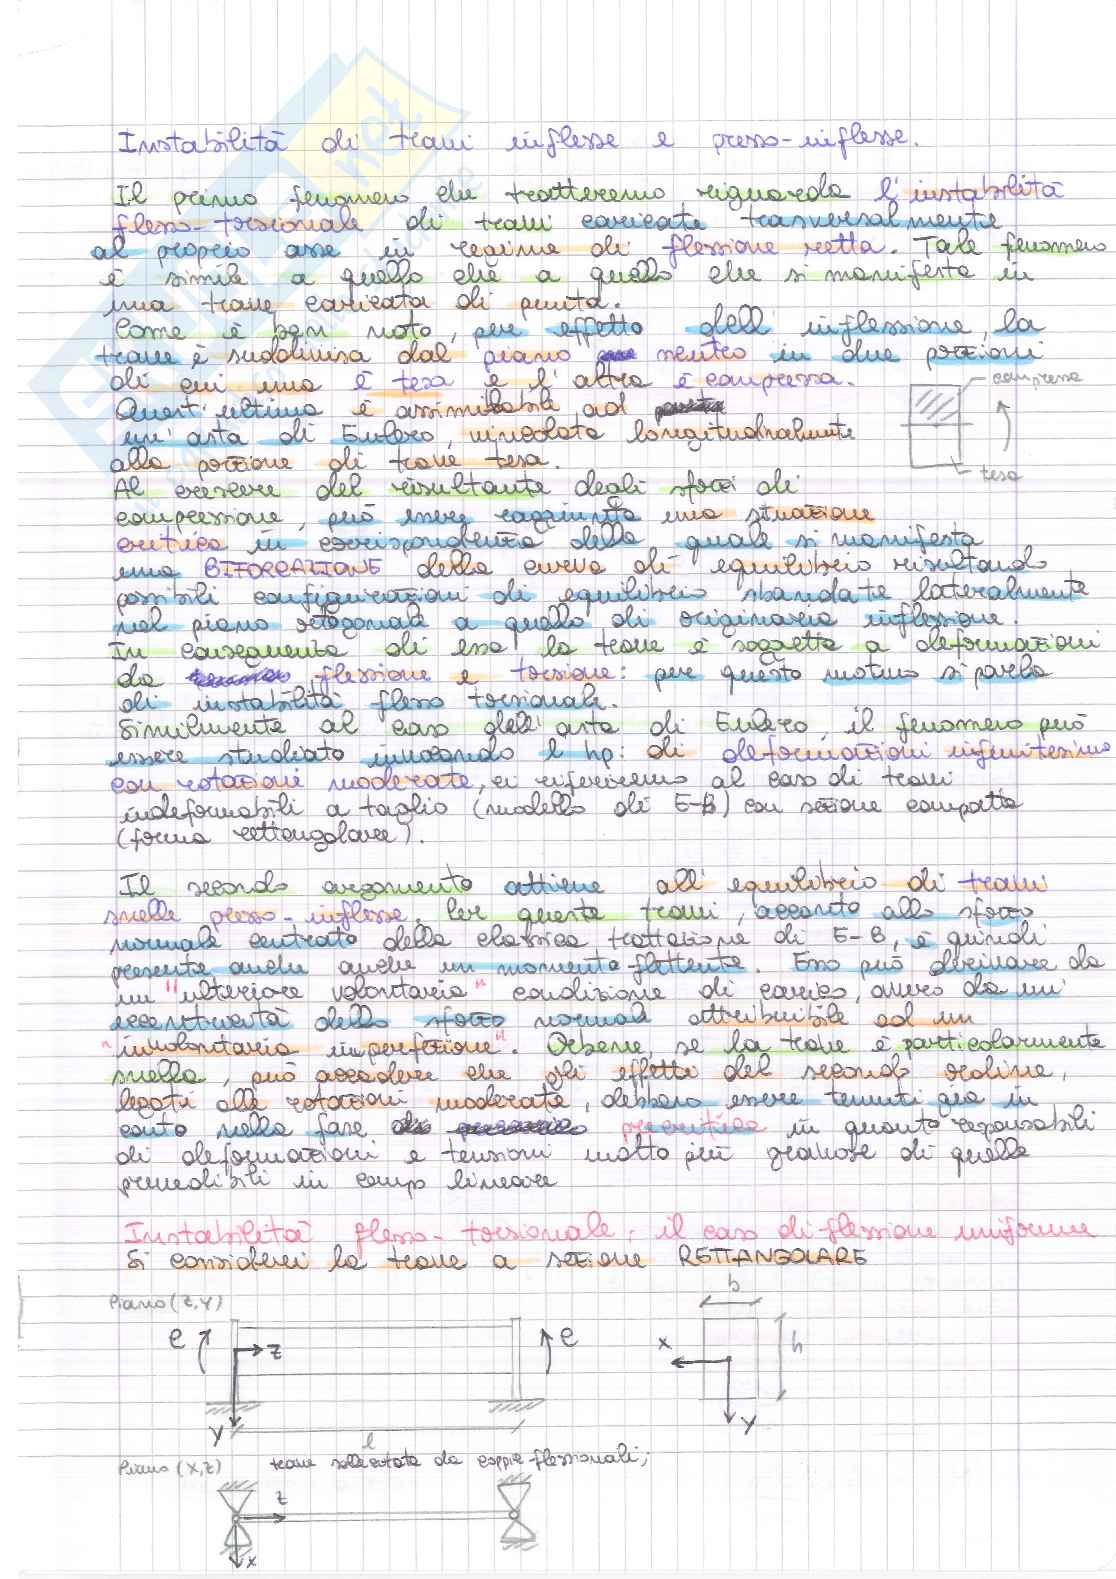 Instabilità di travi inflesse e presso-inflesse.
Il primo fenomeno che tratteremo riguarda l'instabilità
flesso-torsionale di travi caricate trasversalmente
al proprio asse in regime di flessione retta. Tale fenomeno
è simile a quello che a quello che si manifesta in
una trave caricata di punta.
Come è ben noto, per effetto dell'inflessione, la
trave è suddivisa dal piano neutro in due porzioni
di cui una è tesa e l'altra è compressa.
compressa
Quest'ultima è assimilabile ad
un'asta di Eulero, vincolata longitudinalmente
alla porzione di trave tesa.
tesa
Al crescere del risultante degli sforzi di
compressione, può essere raggiunta una situazione
critica in corrispondenza della quale si manifesta
una BIFORCAZIONE della curva di equilibrio risultando
possibili configurazioni di equilibrio sbandate lateralmente
nel piano ortogonale a quello di originaria inflessione.
In conseguenza di essa la trave è soggetta a deformazioni
da flessione e torsione: per questo motivo si parla
di instabilità flesso torsionale.
Similmente al caso dell'asta di Eulero, il fenomeno può
essere studiato invocando l hp: di deformazioni infinitesime
con rotazioni moderate, ci riferiremo al caso di travi
indeformabili a taglio (modello di E-B) con sezione compatta
(forma rettangolare).
Il secondo argomento attiene all'equilibrio di travi
snelle presso-inflesse. Per queste travi, accanto allo sforzo
normale centrato della classica trattazione di E-B, è quindi
presente anche anche un momento flettente. Esso può derivare da
un "ulteriore volontaria" condizione di carico, ovvero da un'
eccentricità dello sforzo normale attribuibile ad un
"involontaria imperfezione". Orbene, se la trave è particolarmente
snella, può accadere che gli effetti del secondo ordine,
legati alle rotazioni moderate, debbano essere tenuti già in
conto nella fase precritica in quanto responsabili
di deformazioni e tensioni molto più gravose di quelle
prevedibili in campo lineare
Instabilità flesso-torsionale: il caso di flessione uniforme
Si consideri la trave a sezione RETTANGOLARE
Piano (Z,Y)
b
e
z
e
x
h
y
y
l
Piano (X,Z)
trave sollecitata da coppie flessionali;
z
x